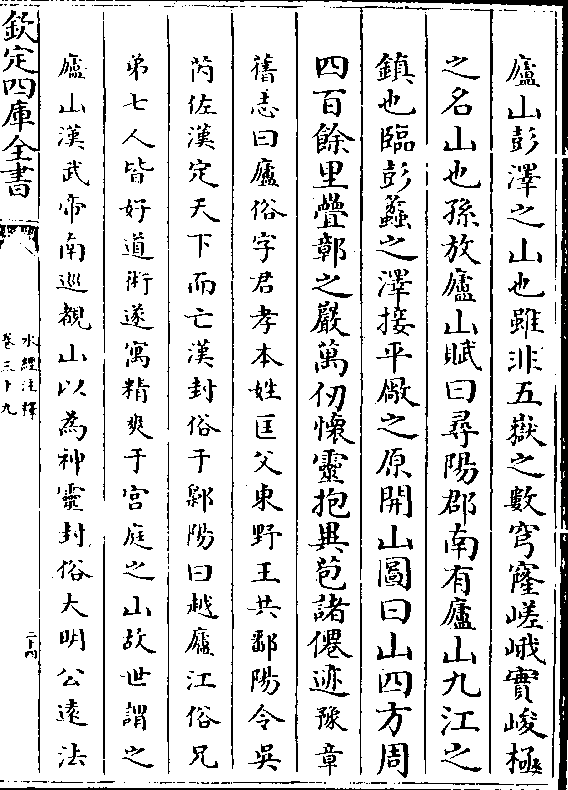 廬山彭澤之山也雖非五嶽之數穹窿嵯峨實峻極
之名山也孫放廬山賦曰尋陽郡南有廬山九江之
鎮也臨彭蠡之澤接平敞之原開山圖曰山四方周
四百餘里疊鄣之巖萬仞懷靈抱異苞諸僊迹豫章
舊志曰廬俗字君孝本姓匡父東野王共鄱陽令吳
芮佐漢定天下而亡漢封俗于鄡陽曰越廬江俗兄
弟七人皆好道術遂寓精爽于宫庭之山故世謂之
廬山漢武帝南巡覩山以為神靈封俗大明公遠法
欽定四庫全書
水經注釋
卷三十九
二十四